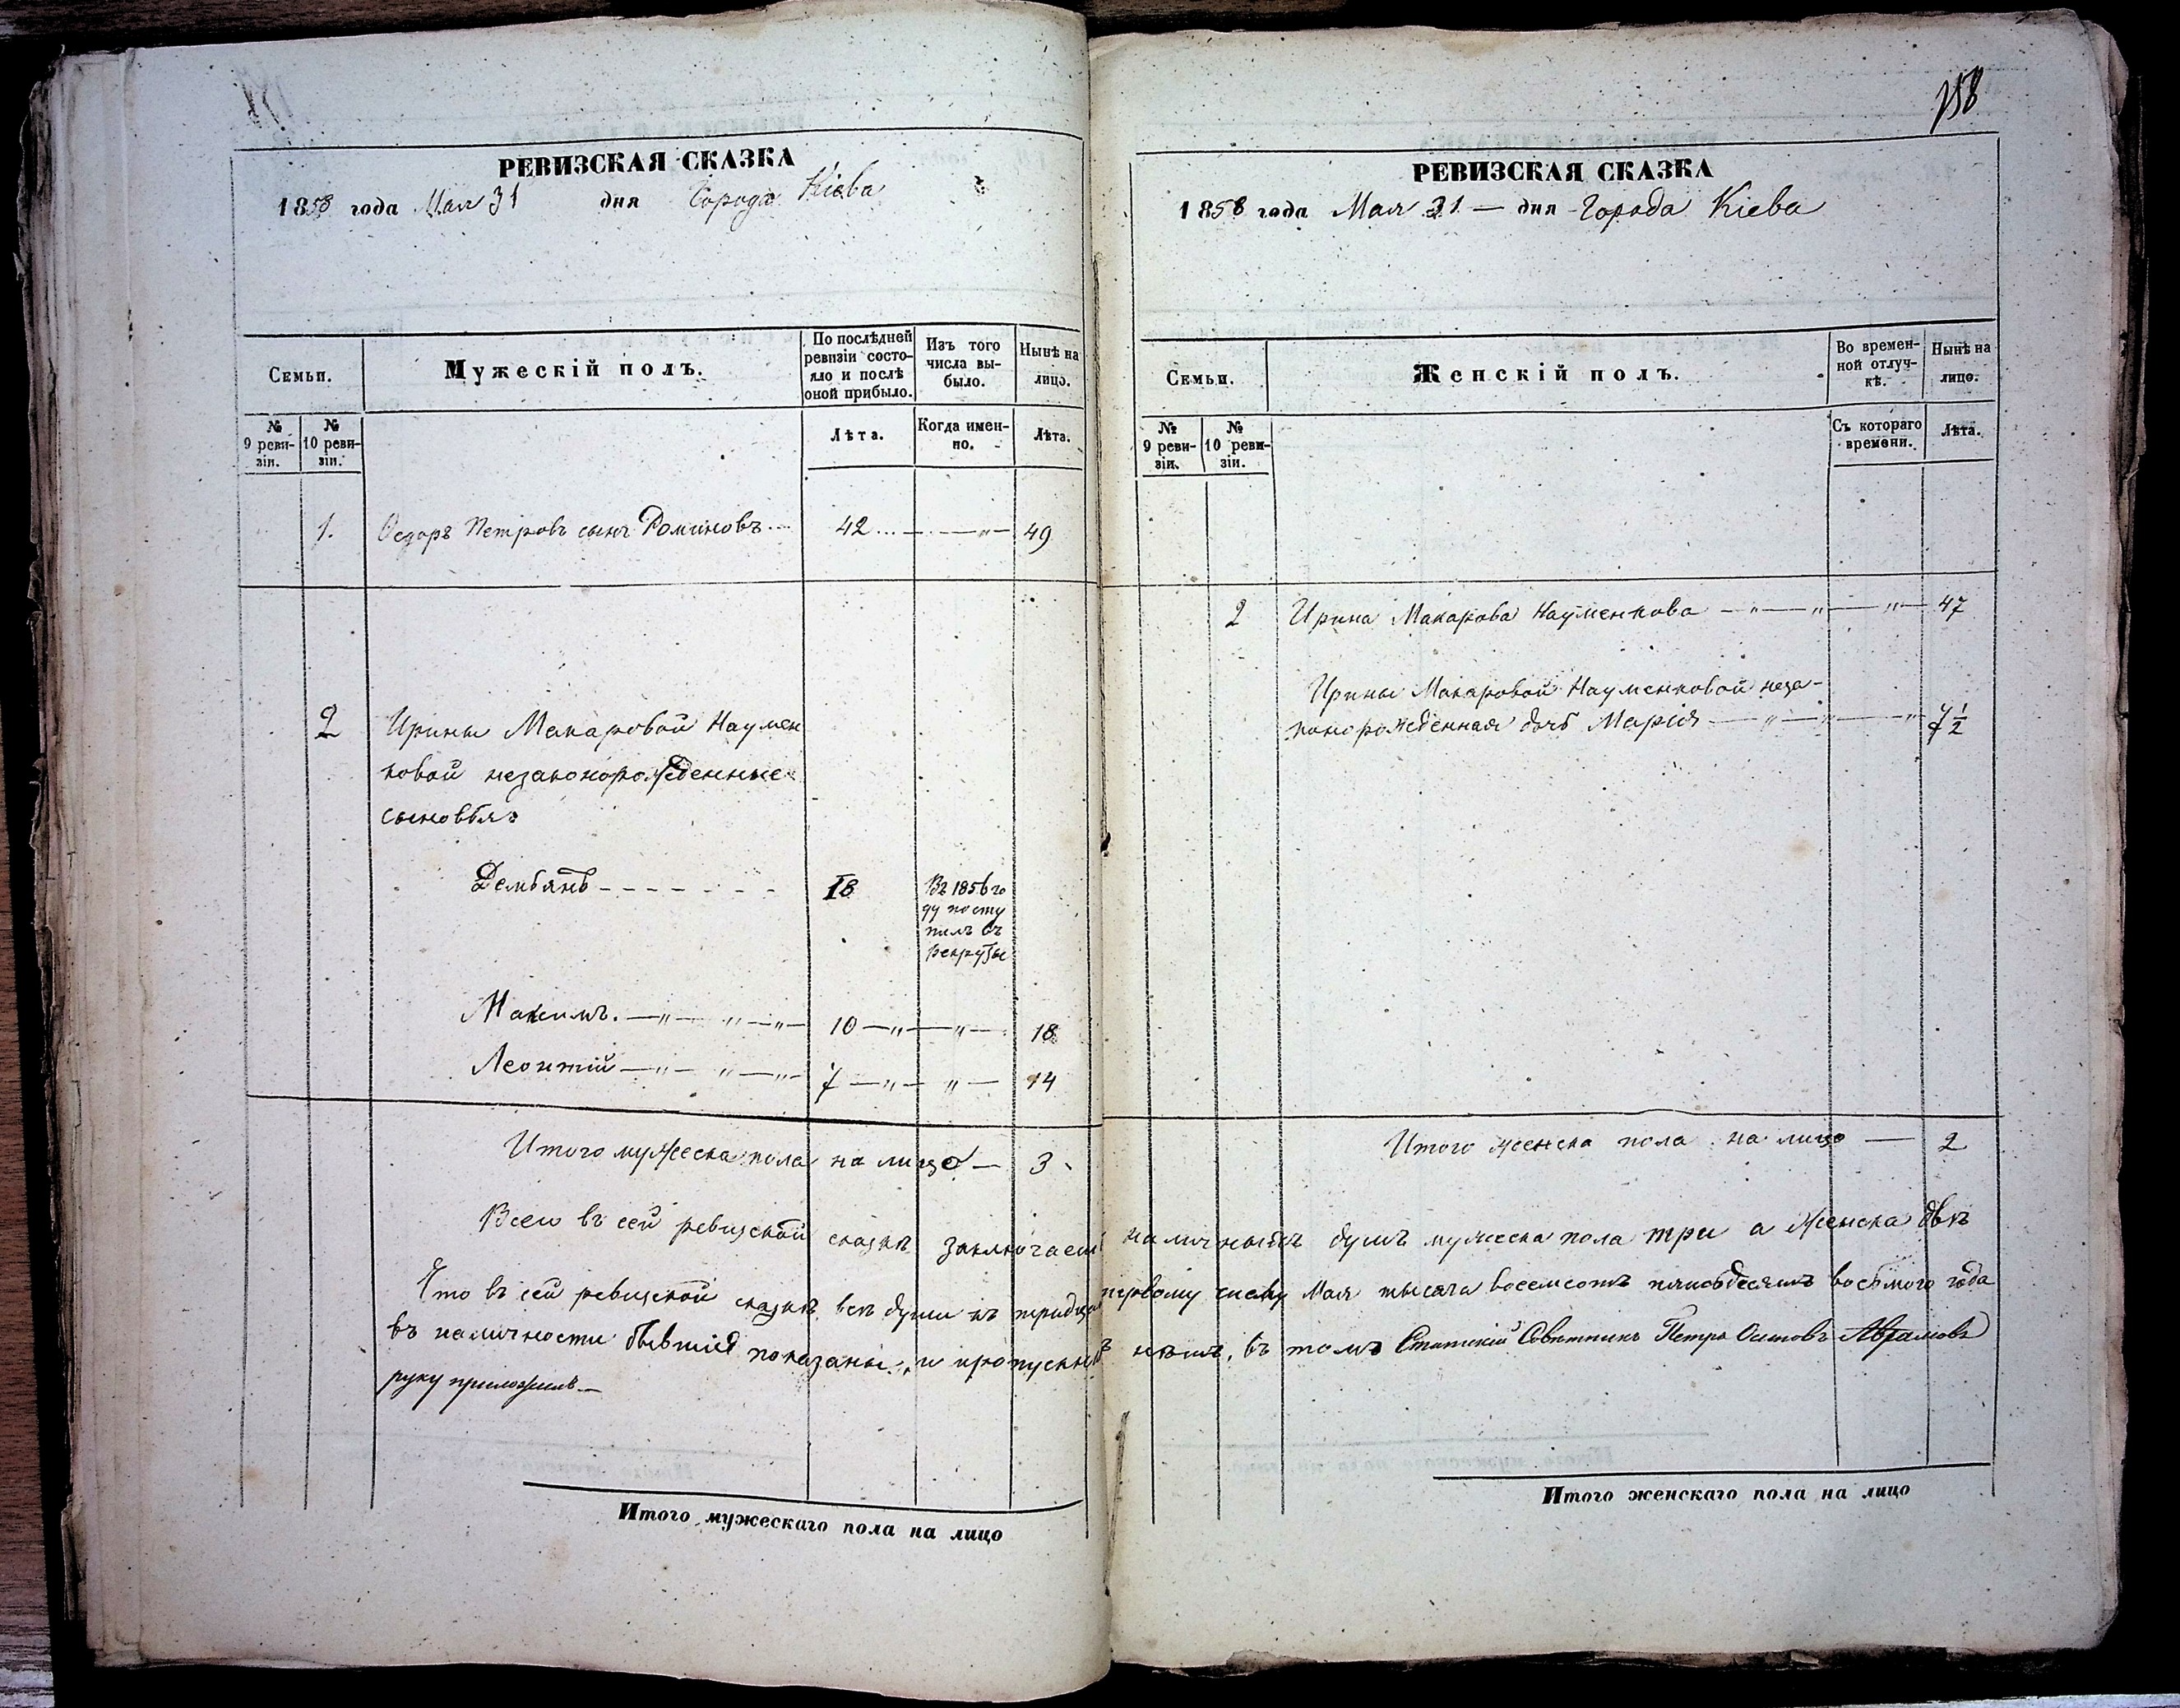 РЕВИЗСКАЯ СКАЗКА
1858 года Мая 31 дня Города Кіева
Семьи.
Мужескій полъ.
По послѣдней
ревизіи состо-
яло и послѣ
оной прибыло.
Изъ того
числа вы-
было.
Нынѣ на
лицо.
№
9 реви-
зіи.
№
10 реви-
зіи.
Лѣта.
Когда имен-
но.
Лѣта.
1. Ѳедоръ Петровъ сынъ Роминовъ 42 — " — 49
2 Ирины Макаровой Наумен
ковой незаконорожденные
сыновья
Демьянъ 18
Въ 1856 го
ду посту
пилъ въ
рекруты
Максимъ. — " — " — " — 10 — " — " — 18
Леонтій — " — " — " — 7 — " — " — 14
Итого мужеска пола на лицо — 3
Итого мужескаго пола на лицо
158
РЕВИЗСКАЯ СКАЗКА
1858 года Мая 31 — дня Города Кіева
Семьи.
Женскій полъ.
Во времен-
ной отлуч-
кѣ.
Нынѣ на
лицо.
№
9 реви-
зіи.
№
10 реви-
зіи.
Съ котораго
времени.
Лѣта.
2 Ирина Макарова Науменкова — " — " — " — 47
Ирины Макаровой Науменковой неза-
конорожденная дочь Марія — " — " — " 7½
Итого женска пола на лицо — 2
Всего въ сей ревизской сказкѣ заключается наличныхъ душъ мужеска пола три а женска двѣ
Что въ сей ревизской сказкѣ всѣ души къ тридцать первому числу Мая тысяча восемсотъ пятьдесятъ восьмого года
въ наличности бывшія показаны, и пропускныхъ нѣтъ, въ томъ Статскій Совѣтникъ Петръ Осиповъ Аврамовъ
руку приложилъ —
Итого женскаго пола на лицо